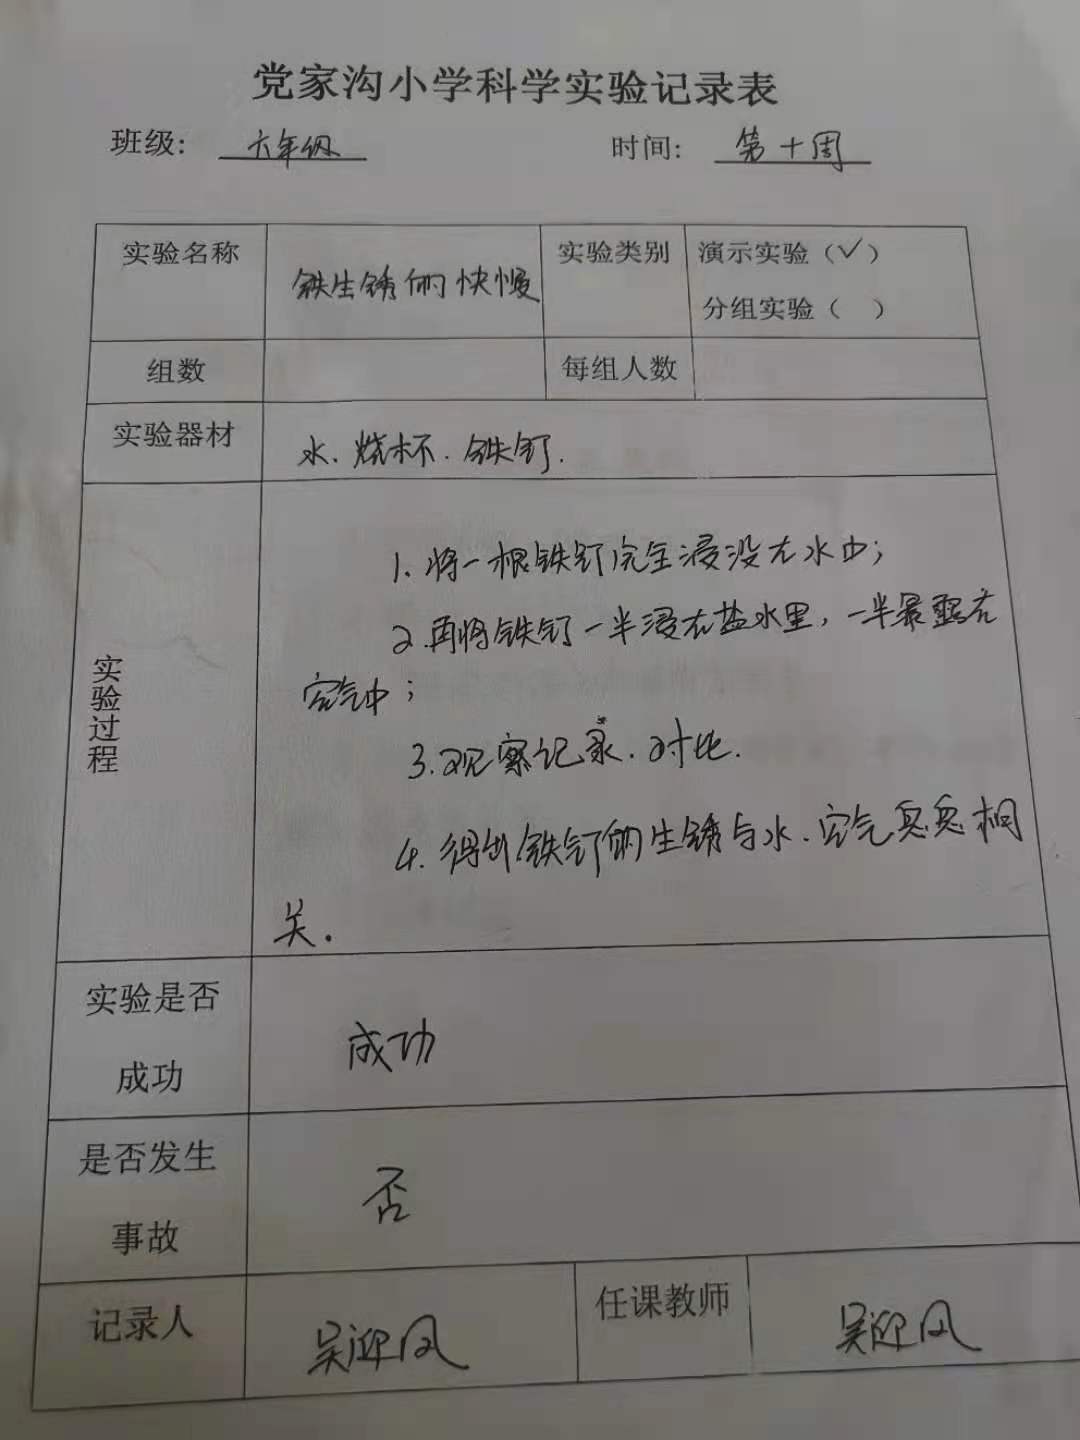 党家沟小学科学实验记录表
班级: 六年级 时间: 第十周
实验名称 铁生锈的快慢 实验类别 演示实验（✓）
分组实验（ ）
组数 每组人数
实验器材 水. 烧杯. 铁钉.
实验过程
1. 将一根铁钉完全浸没在水中;
2. 再将铁钉一半浸在盐水里, 一半暴露在
空气中;
3. 观察记录. 对比.
4. 得出铁钉的生锈与水. 空气息息相
关.
实验是否
成功
成功
是否发生
事故
否
记录人 吴迎凤 任课教师 吴迎凤